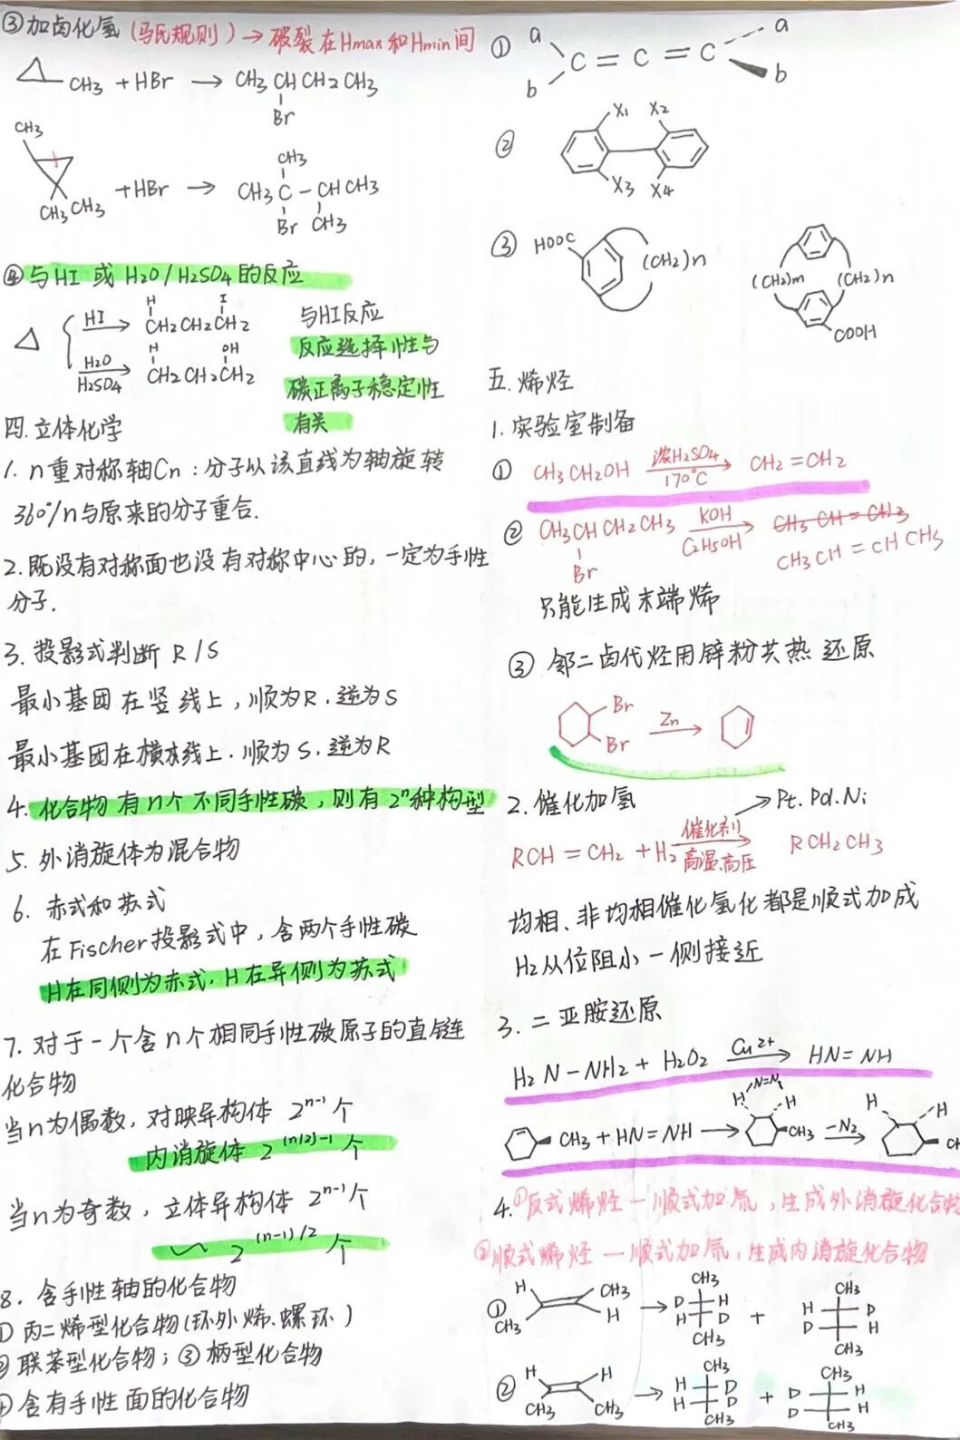 ③加卤化氢(马氏规则)→破裂在Hmax和Hmin间
CH3 + HBr → CH3 CH CH2 CH3
Br
CH3
CH3 CH3
+HBr →
CH3
CH3 C - CH CH3
Br CH3
④与HI 或 H2O/H2SO4的反应
HI
H I
CH2CH2CH2
H2O
H2SO4
H OH
CH2CH2CH2
与HI反应
反应选择性与
碳正离子稳定性
有关
四.立体化学
1. n重对称轴Cn:分子以该直线为轴旋转
360°/n与原来的分子重合.
2.既没有对称面也没有对称中心的,一定为手性
分子.
3.投影式判断 R/S
最小基团在竖线上,顺为R.逆为S
最小基团在横线上.顺为S.逆为R
4.化合物有n个不同手性碳,则有2ⁿ种构型
5.外消旋体为混合物
6.赤式和苏式
在Fischer投影式中,含两个手性碳
H在同侧为赤式.H在异侧为苏式
7.对于一个含n个相同手性碳原子的直链
化合物
当n为偶数,对映异构体 2ⁿ⁻¹个
内消旋体 2^(n/2)-1 个
当n为奇数,立体异构体 2ⁿ⁻¹个
2^(n-1)/2 个
8.含手性轴的化合物
① 丙二烯型化合物(环外烯.螺环)
② 联苯型化合物;③柄型化合物
④含有手性面的化合物
① a b C = C = C a b
② X1 X2 X3 X4
③ HOOC (CH2)n
(CH2)m (CH2)n
COOH
五.烯烃
1.实验室制备
① CH3CH2OH 浓H2SO4 170°C → CH2=CH2
② CH3CHCH2CH3 KOH C2H5OH → CH3 CH=CH2
Br
CH3CH=CHCH3
只能生成末端烯
③ 邻二卤代烃用锌粉共热还原
Br
Br
Zn
2.催化加氢
→Pt.Pd.Ni
RCH=CH2 + H2 催化剂 高温.高压 → RCH2CH3
均相、非均相催化氢化都是顺式加成
H2从位阻小一侧接近
3.二亚胺还原
H2N-NH2 + H2O2 Cu²⁺ → HN=NH
N=N
H H
CH3 + HN=NH → CH3 -N2 →
H H
CH
4.①反式烯烃—顺式加氘,生成外消旋化合物
②顺式烯烃—顺式加氘,生成内消旋化合物
①
H CH3
CH3 H
→
CH3
D H
H D
CH3
+
CH3
H D
D H
CH3
②
H H
CH3 CH3
→
CH3
H D
H D
CH3
+
CH3
D H
D H
CH3